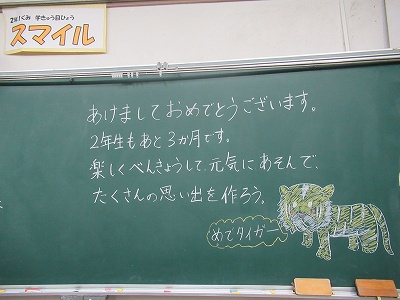 2年1くみ 学きゅう目ひょう
スマイル
あけましておめでとうございます。
2年生もあと3か月です。
楽しくべんきょうして、元気にあそんで、
たくさんの思い出を作ろう。
めでタイガー